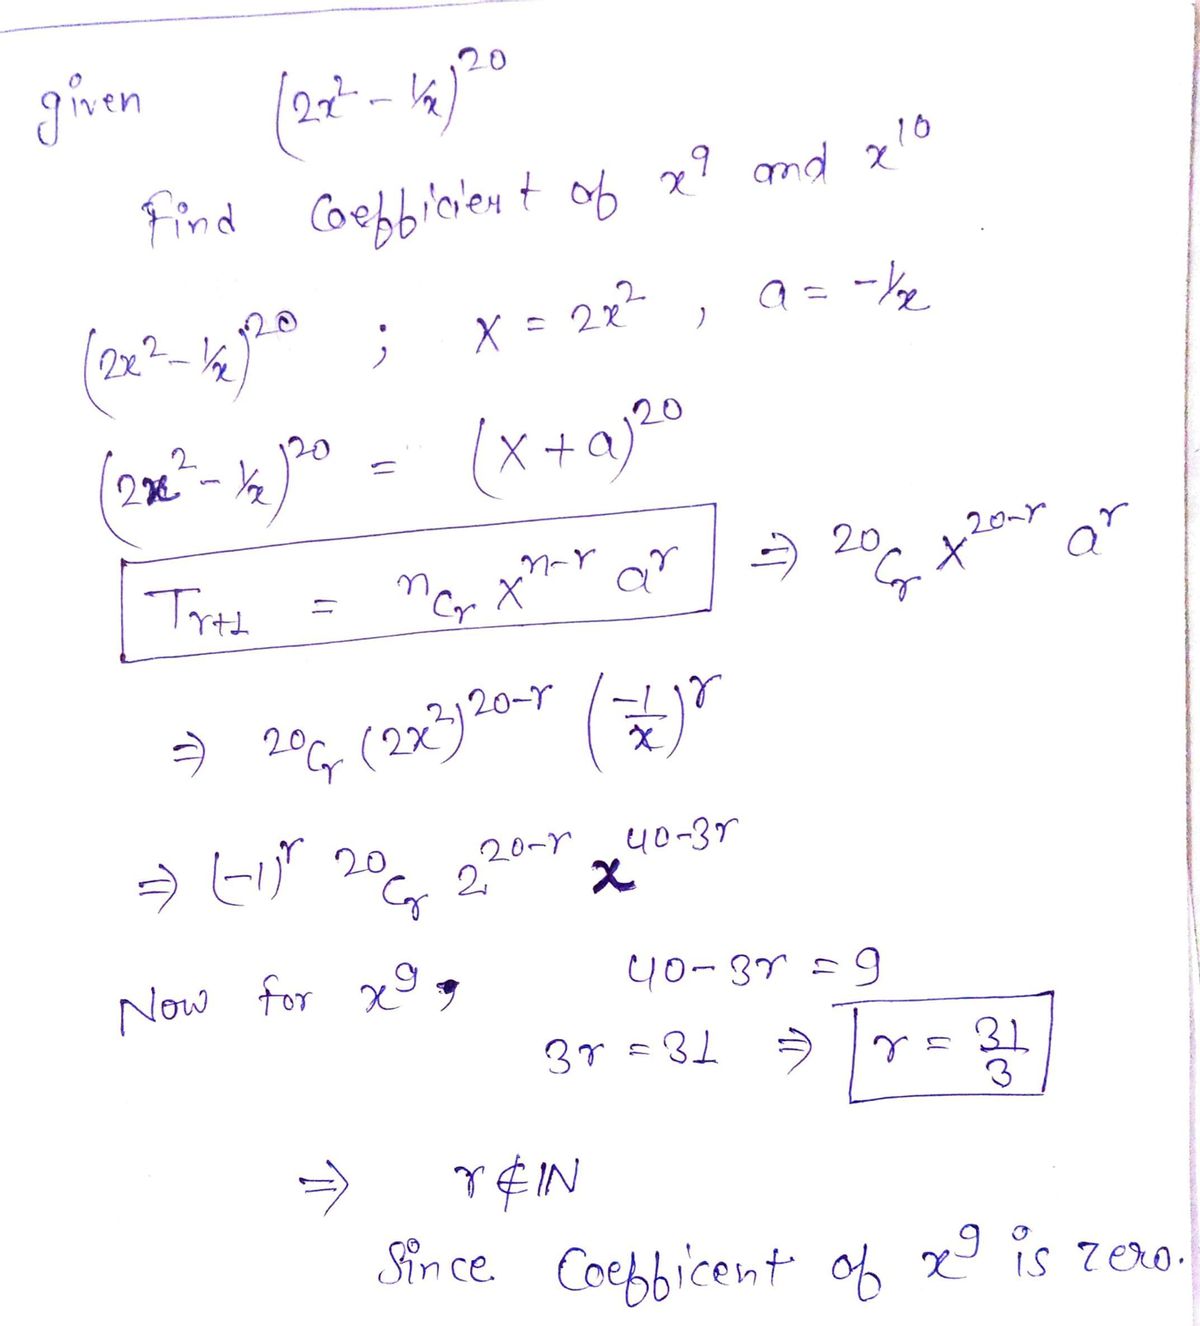 given (2x² - 1/x)²⁰
Find Coefficient of x⁹ and x¹⁰
(2x² - 1/x)²⁰ ; X = 2x² , a = -1/x
(2x² - 1/x)²⁰ = (X + a)²⁰
Tᵣ₊₁ = ⁿCᵣ Xⁿ⁻ʳ aʳ ⇒ ²⁰Cᵣ X²⁰⁻ʳ aʳ
⇒ ²⁰Cᵣ (2x²)²⁰⁻ʳ (-1/x)ʳ
⇒ (-1)ʳ ²⁰Cᵣ 2²⁰⁻ʳ x⁴⁰⁻³ʳ
Now for x⁹, 40 - 3r = 9
3r = 31 ⇒ r = 31/3
⇒ r ∉ IN
Since Coefficent of x⁹ is zero.